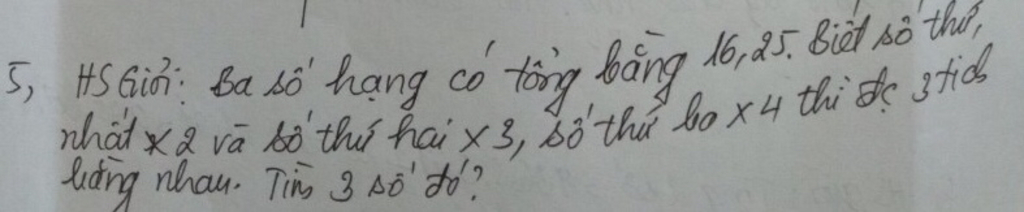 5, HS Giỏi: Ba số hạng có tổng bằng 16,25. Biết số thứ
nhất x 2 và số thứ hai x 3, số thứ ba x 4 thì đc 3 tích
bằng nhau. Tìm 3 số đó?